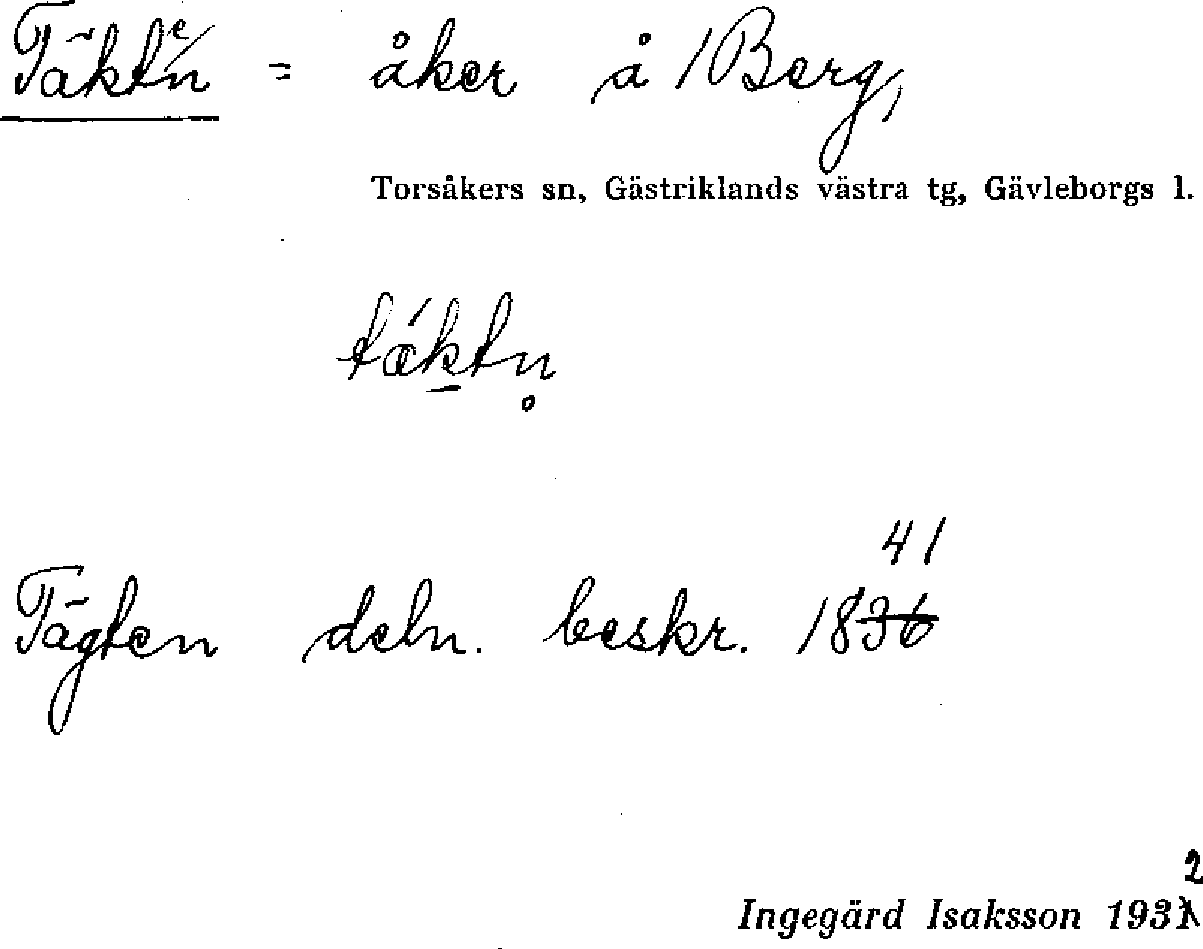 Täkten = åker å /Berg,
Torsåkers sn, Gästriklands västra tg, Gävleborgs l.
tǽk̲tn̥
Tägten deln. beskr. 1841
Ingegärd Isaksson 1932